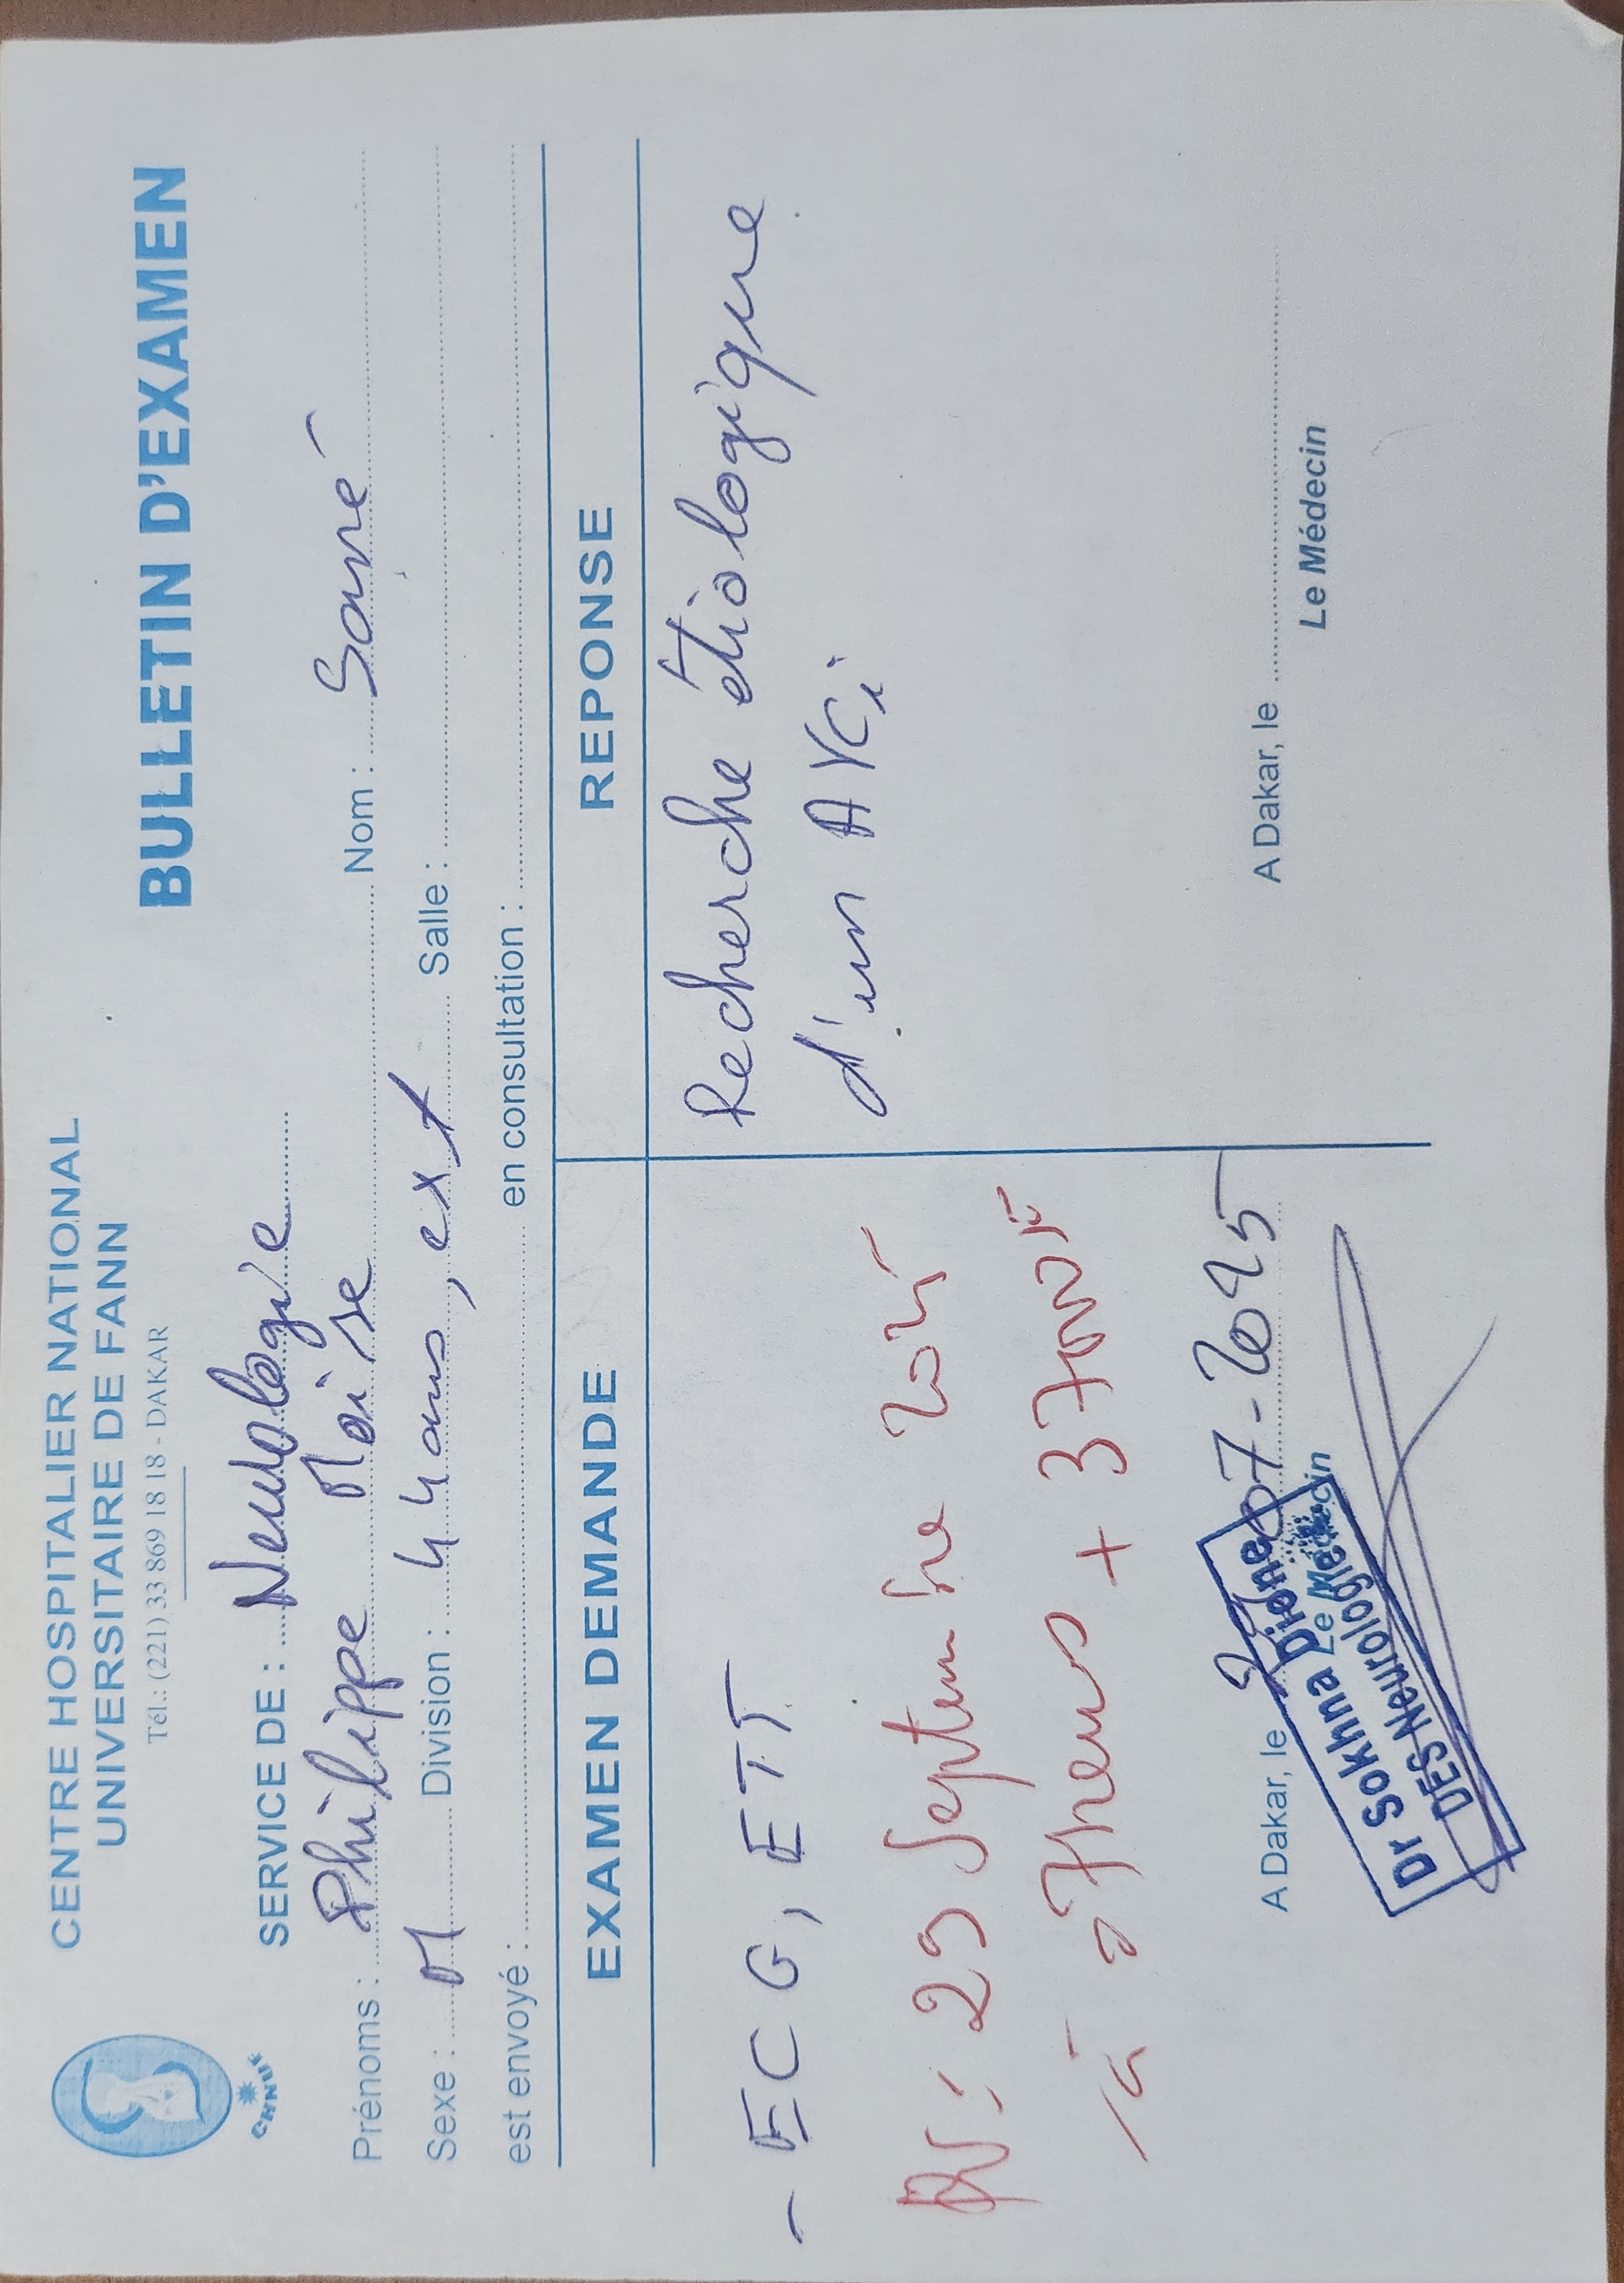 CENTRE HOSPITALIER NATIONAL
UNIVERSITAIRE DE FANN
Tél.: (221) 33 869 18 18 - DAKAR
CHNUF
BULLETIN D'EXAMEN
SERVICE DE : Neurologie
Prénoms : Philippe Moise Nom : Sané
Sexe : M Division : 44ans, ext Salle :
est envoyé : en consultation :
EXAMEN DEMANDE
- ECG, ETT
RV : 29 Septembre 2025
à 9 heures + 37000F
A Dakar, le 07-2025
Le Médecin
Dr Sokhna Dieng
DES Neurologie
REPONSE
Recherche étiologique
d'un AVCi
A Dakar, le
Le Médecin